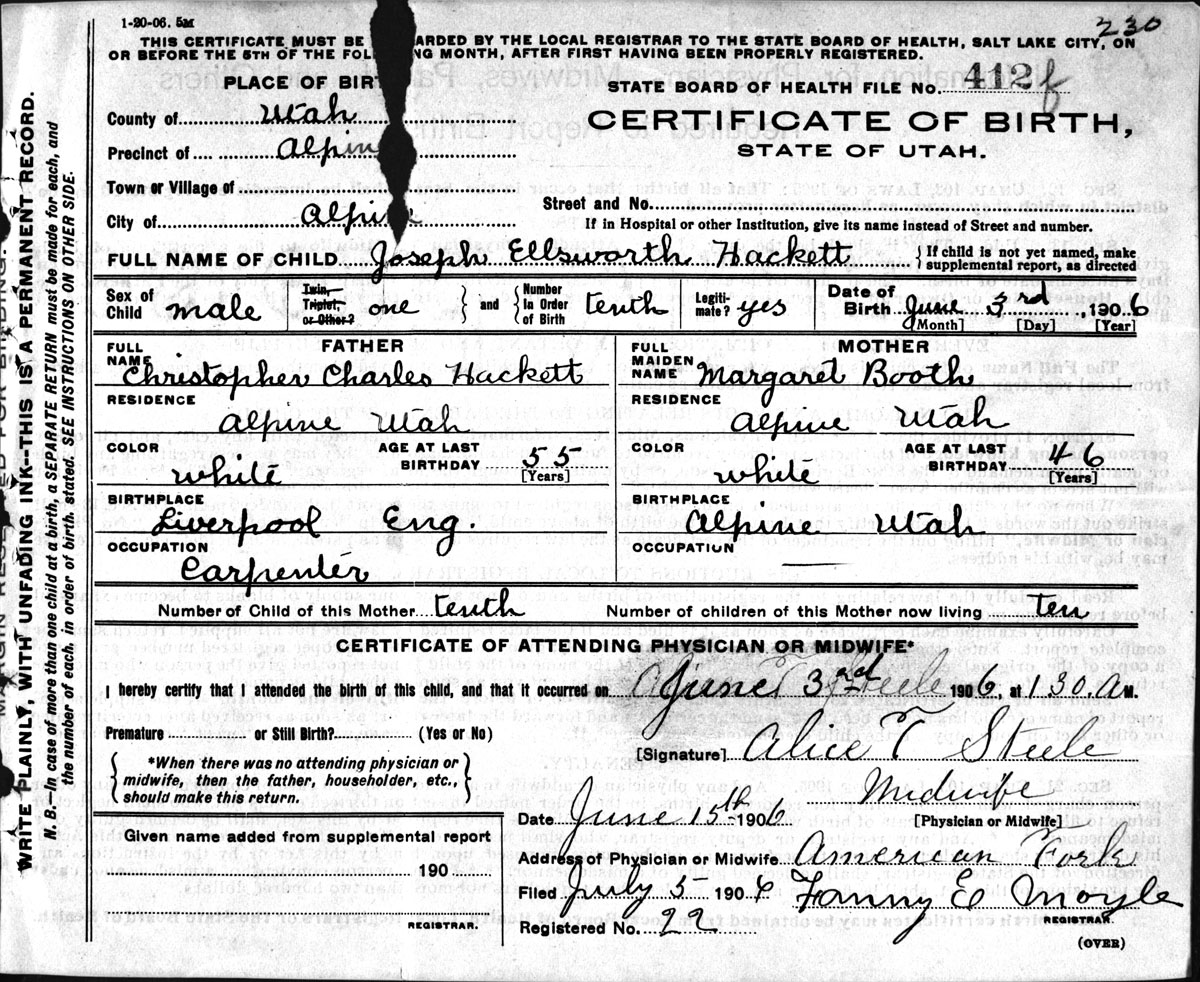 1-20-06. 5M
230
THIS CERTIFICATE MUST BE ARDED BY THE LOCAL REGISTRAR TO THE STATE BOARD OF HEALTH, SALT LAKE CITY, ON
OR BEFORE THE 5TH OF THE FOL NG MONTH, AFTER FIRST HAVING BEEN PROPERLY REGISTERED.
PLACE OF BIRTH
STATE BOARD OF HEALTH FILE NO. 412 f
County of Utah
CERTIFICATE OF BIRTH,
Precinct of Alpin
STATE OF UTAH.
Town or Village of
Street and No.
City of Alpine
If in Hospital or other Institution, give its name instead of Street and number.
FULL NAME OF CHILD Joseph Ellsworth Hackett { If child is not yet named, make
supplemental report, as directed
Sex of Child male
Twin, Triplet, or Other? one } and { Number in Order of Birth tenth
Legiti-mate? yes
Date of Birth June 3rd, 1906
[Month] [Day] [Year]
FATHER
FULL NAME Christopher Charles Hackett
RESIDENCE
Alpine Utah
COLOR white AGE AT LAST BIRTHDAY 55
[Years]
BIRTHPLACE
Liverpool Eng.
OCCUPATION
Carpenter
MOTHER
FULL MAIDEN NAME Margaret Booth
RESIDENCE
Alpine Utah
COLOR white AGE AT LAST BIRTHDAY 46
[Years]
BIRTHPLACE
Alpine Utah
OCCUPATION
Number of Child of this Mother tenth Number of children of this Mother now living ten
CERTIFICATE OF ATTENDING PHYSICIAN OR MIDWIFE*
I hereby certify that I attended the birth of this child, and that it occurred on June 3rd 1906, at 1 30. A M.
Premature or Still Birth? (Yes or No)
[Signature] Alice T Steele
{ *When there was no attending physician or
midwife, then the father, householder, etc.,
should make this return. }
Midwife
Date June 15th 1906 [Physician or Midwife]
Given name added from supplemental report
190
REGISTRAR.
Address of Physician or Midwife American Fork
Filed July 5 1906 Fanny E Moyle
REGISTRAR.
Registered No. 22
(OVER)
MARGIN RESERVED FOR BINDING.
WRITE PLAINLY, WITH UNFADING INK--THIS IS A PERMANENT RECORD.
N. B.--In case of more than one child at a birth, a SEPARATE RETURN must be made for each, and
the number of each, in order of birth, stated. SEE INSTRUCTIONS ON OTHER SIDE.